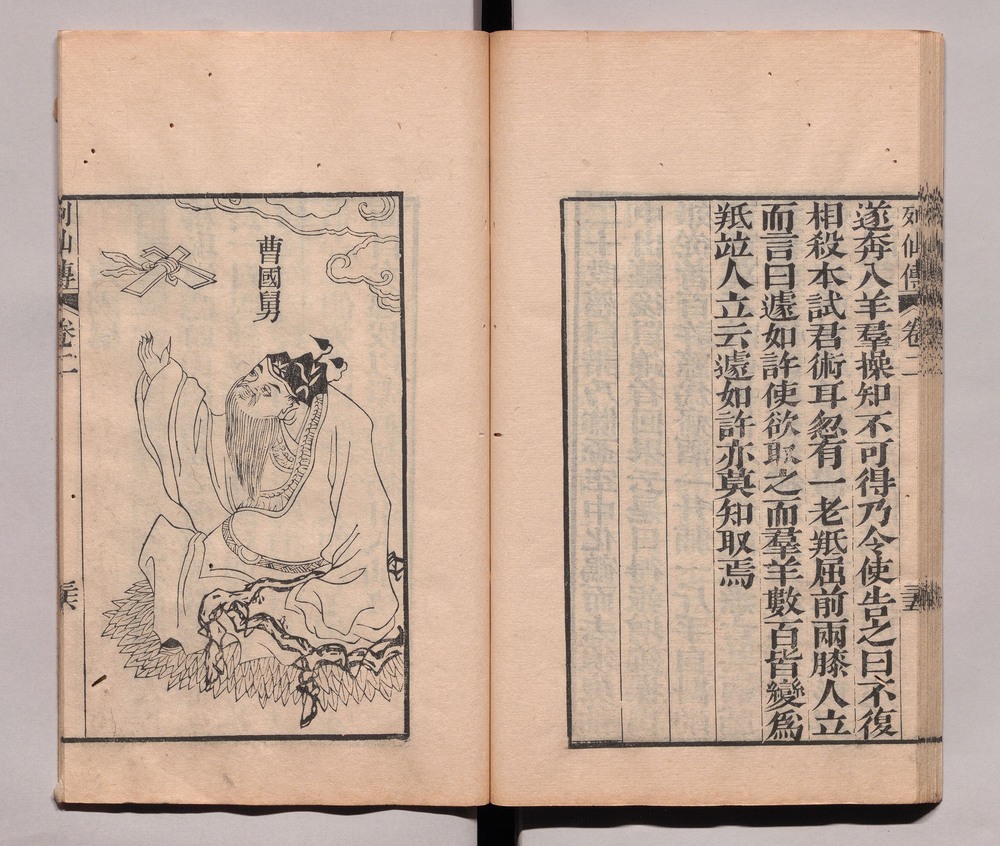 列仙傳
卷二
三五
遂奔入羊羣操知不可得乃令使告之曰不復
相殺本試君術耳忽有一老羝屈前兩膝人立
而言曰遽如許使欲取之而羣羊數百皆變爲
羝竝人立云遽如許亦莫知取焉
曹國舅
列仙傳
卷二
三六